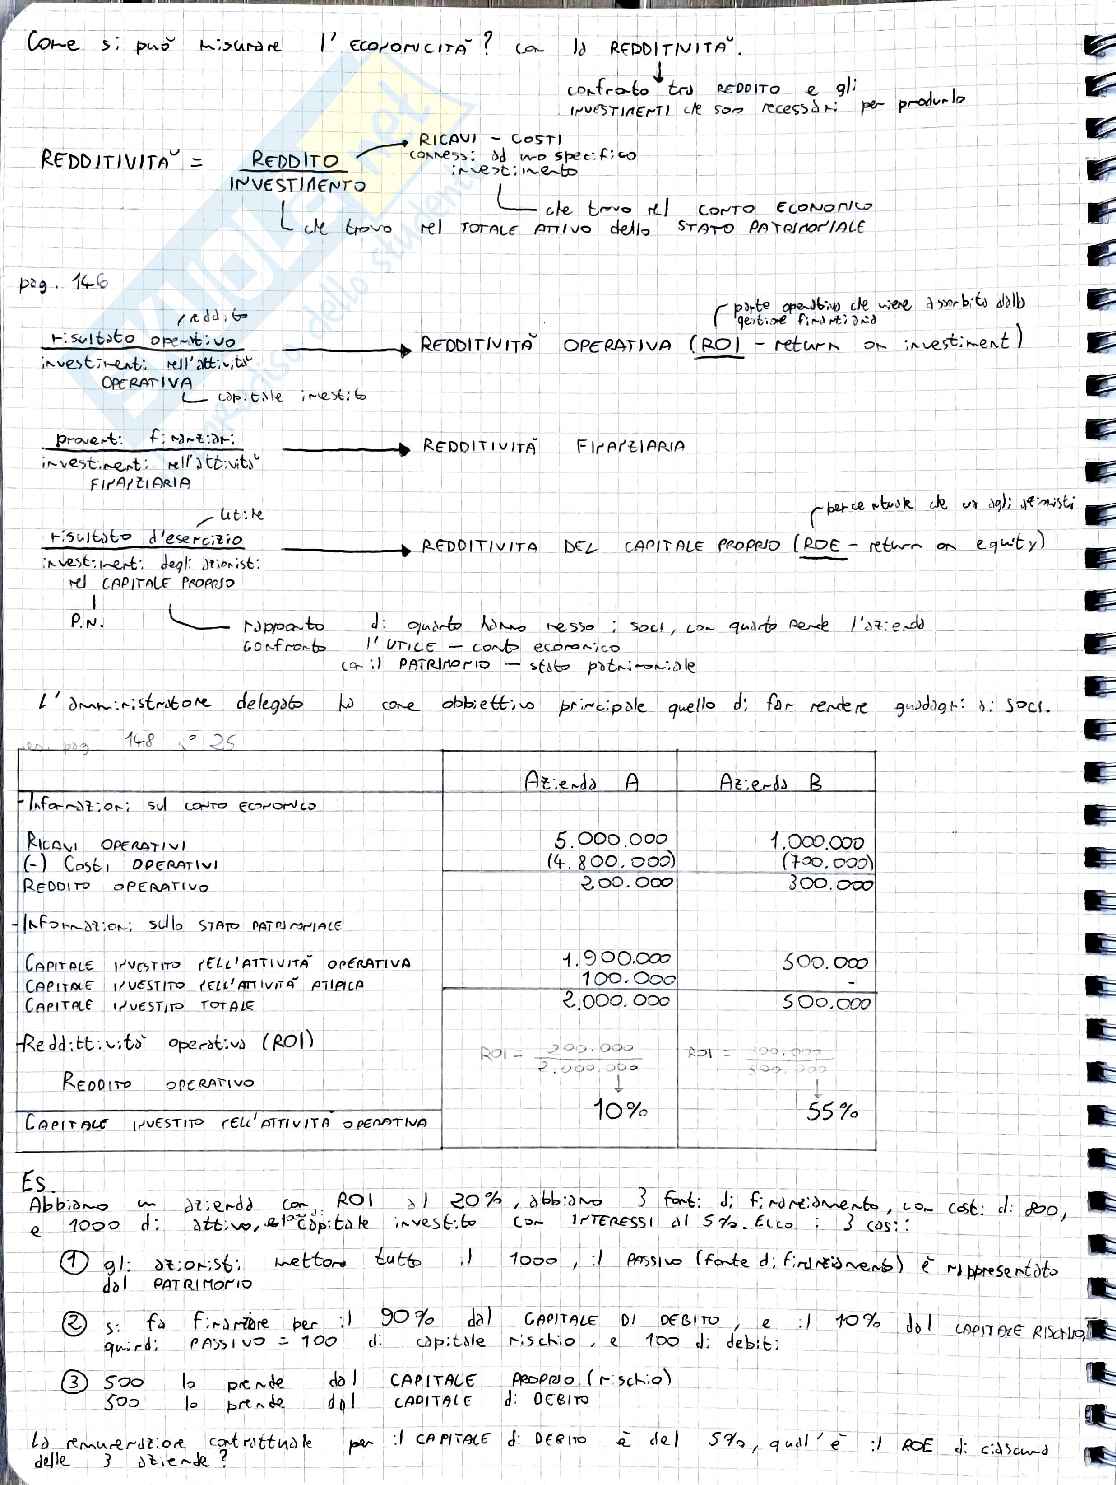 Come si può misurare l'ECONOMICITÀ? con la REDDITIVITÀ.
confronto tra REDDITO e gli
INVESTIMENTI che sono necessari per produrlo
REDDITIVITÀ = REDDITO
INVESTIMENTO
RICAVI - COSTI
connessi ad uno specifico
investimento
che trovo nel CONTO ECONOMICO
che trovo nel TOTALE ATTIVO dello STATO PATRIMONIALE
pag. 146
reddito
risultato operativo
investimenti nell'attività
OPERATIVA
capitale investito
parte operativa che viene assorbita dalla
gestione finanziaria
REDDITIVITÀ OPERATIVA (ROI - return on investiment)
proventi finanziari
investimenti nell'attività
FINANZIARIA
REDDITIVITÀ FINANZIARIA
utile
risultato d'esercizio
investimenti degli azionisti
nel CAPITALE PROPRIO
P.N.
percentuale che va agli azionisti
REDDITIVITA DEL CAPITALE PROPRIO (ROE - return on equity)
rapporto di quanto hanno messo i soci, con quanto rende l'azienda
confronto l'UTILE - conto economico
con il PATRIMONIO - stato patrimoniale
L'amministratore delegato ha come obbiettivo principale quello di far rendere guadagni ai soci.
es. pag. 148 n° 25
Azienda A Azienda B
- Informazioni sul CONTO ECONOMICO
RICAVI OPERATIVI 5.000.000 1.000.000
(-) COSTI OPERATIVI (4.800.000) (700.000)
REDDITO OPERATIVO 200.000 300.000
- Informazioni sullo STATO PATRIMONIALE
CAPITALE INVESTITO NELL'ATTIVITÀ OPERATIVA 1.900.000 500.000
CAPITALE INVESTITO NELL'ATTIVITÀ ATIPICA 100.000 -
CAPITALE INVESTITO TOTALE 2.000.000 500.000
- Reddittività operativa (ROI) ROI = 200.000 ROI =
2.000.000 500.000
REDDITO OPERATIVO
10% 55%
CAPITALE INVESTITO NELL'ATTIVITÀ OPERATIVA
Es.
Abbiamo un azienda con ROI al 20%, abbiamo 3 fonti di finanziamento, con costi di 800,
e 1000 di attivo, capitale investito con INTERESSI al 5%. Ecco i 3 casi:
① gli azionisti mettono tutto il 1000, il PASSIVO (fonte di finanziamento) è rappresentato
dal PATRIMONIO
② si fa finanziare per il 90% dal CAPITALE DI DEBITO, e il 10% dal CAPITALE RISCHIO,
quindi PASSIVO = 100 di capitale rischio, e 100 di debiti
③ 500 lo prende dal CAPITALE PROPRIO (rischio)
500 lo prende dal CAPITALE di DEBITO
La remunerazione contrattuale per il CAPITALE di DEBITO è del 5%, qual'è il ROE di ciascuna
delle 3 aziende?